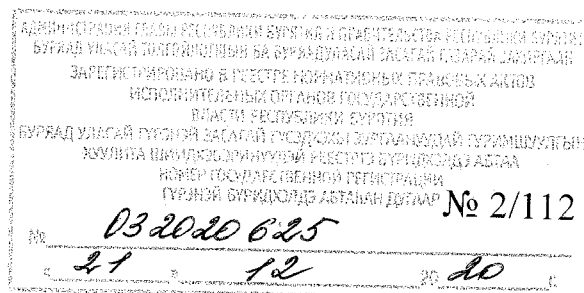 АДМИНИСТРАЦИЯ ГЛАВЫ РЕСПУБЛИКИ БУРЯТИЯ И ПРАВИТЕЛЬСТВА РЕСПУБЛИКИ БУРЯТИЯ
БУРЯАД УЛАСАЙ ТОЛГОЙЛОГШЫН БА БУРЯАД УЛАСАЙ ЗАСАГАЙ ГАЗАРАЙ ЗАХИРГААН
ЗАРЕГИСТРИРОВАНО В РЕЕСТРЕ НОРМАТИВНЫХ ПРАВОВЫХ АКТОВ
ИСПОЛНИТЕЛЬНЫХ ОРГАНОВ ГОСУДАРСТВЕННОЙ
ВЛАСТИ РЕСПУБЛИКИ БУРЯТИЯ
БУРЯАД УЛАСАЙ ГҮРЭНЭЙ ЗАСАГАЙ
НОМЕР ГОСУДАРСТВЕННОЙ РЕГИСТРАЦИИ
ГҮРЭНЭЙ БҮРИДХЭЛДЭ АБТАҺАН ДУГААР № 2/112
№ 032020625
« 21 » 12 20 20 г.